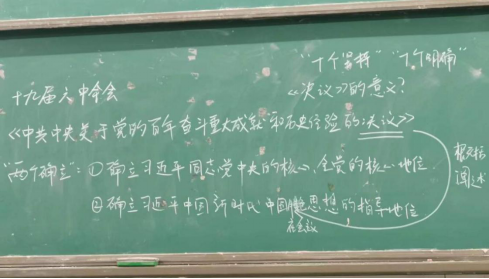 "十个坚持" "十个明确"
十九届六中全会
《决议》的意义?
《中共中央关于党的百年奋斗重大成就和历史经验的决议》
"两个确立":①确立习近平同志党中央的核心、全党的核心地位
②确立习近平中国新时代中国 思想的指导地位
阐述